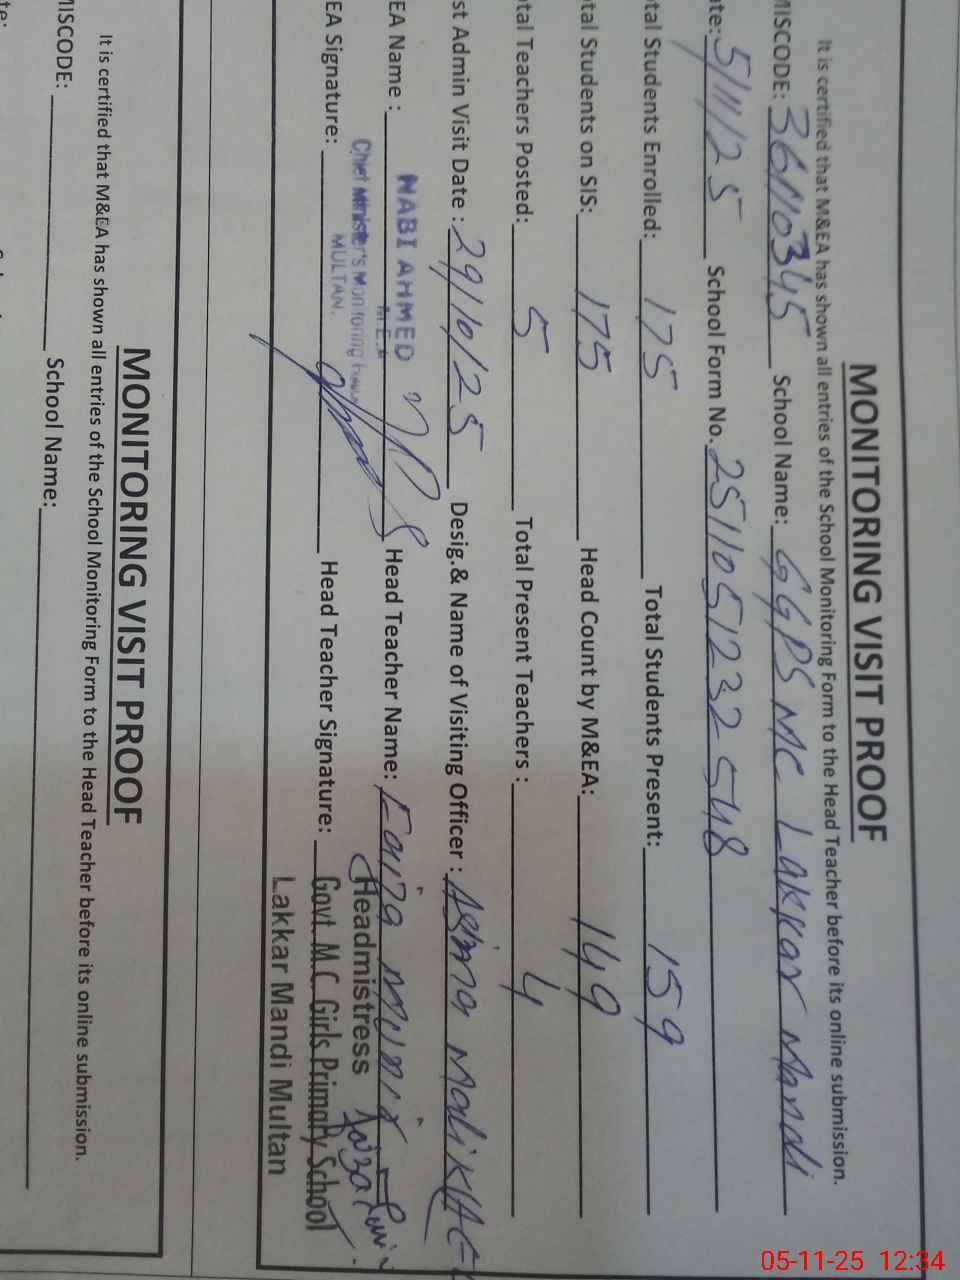 MONITORING VISIT PROOF
It is certified that M&EA has shown all entries of the School Monitoring Form to the Head Teacher before its online submission.
MISCODE: 36110345 School Name: GGPS MC Lakkar Mandi
ate: 5/11/25 School Form No. 251105123 2548
tal Students Enrolled: 175 Total Students Present: 159
tal Students on SIS: 175 Head Count by M&EA: 149
tal Teachers Posted: 5 Total Present Teachers : 4
st Admin Visit Date : 29/10/25 Desig.& Name of Visiting Officer : Asma Malik (AE
EA Name : NABI AHMED Head Teacher Name: Faiza Munir
M.E.A
Chief Minister's Monitoring Force
MULTAN.
EA Signature: Head Teacher Signature:
Headmistress
Govt. M.C. Girls Primary School
Lakkar Mandi Multan
MONITORING VISIT PROOF
It is certified that M&EA has shown all entries of the School Monitoring Form to the Head Teacher before its online submission.
MISCODE: School Name:
te:
05-11-25 12:34